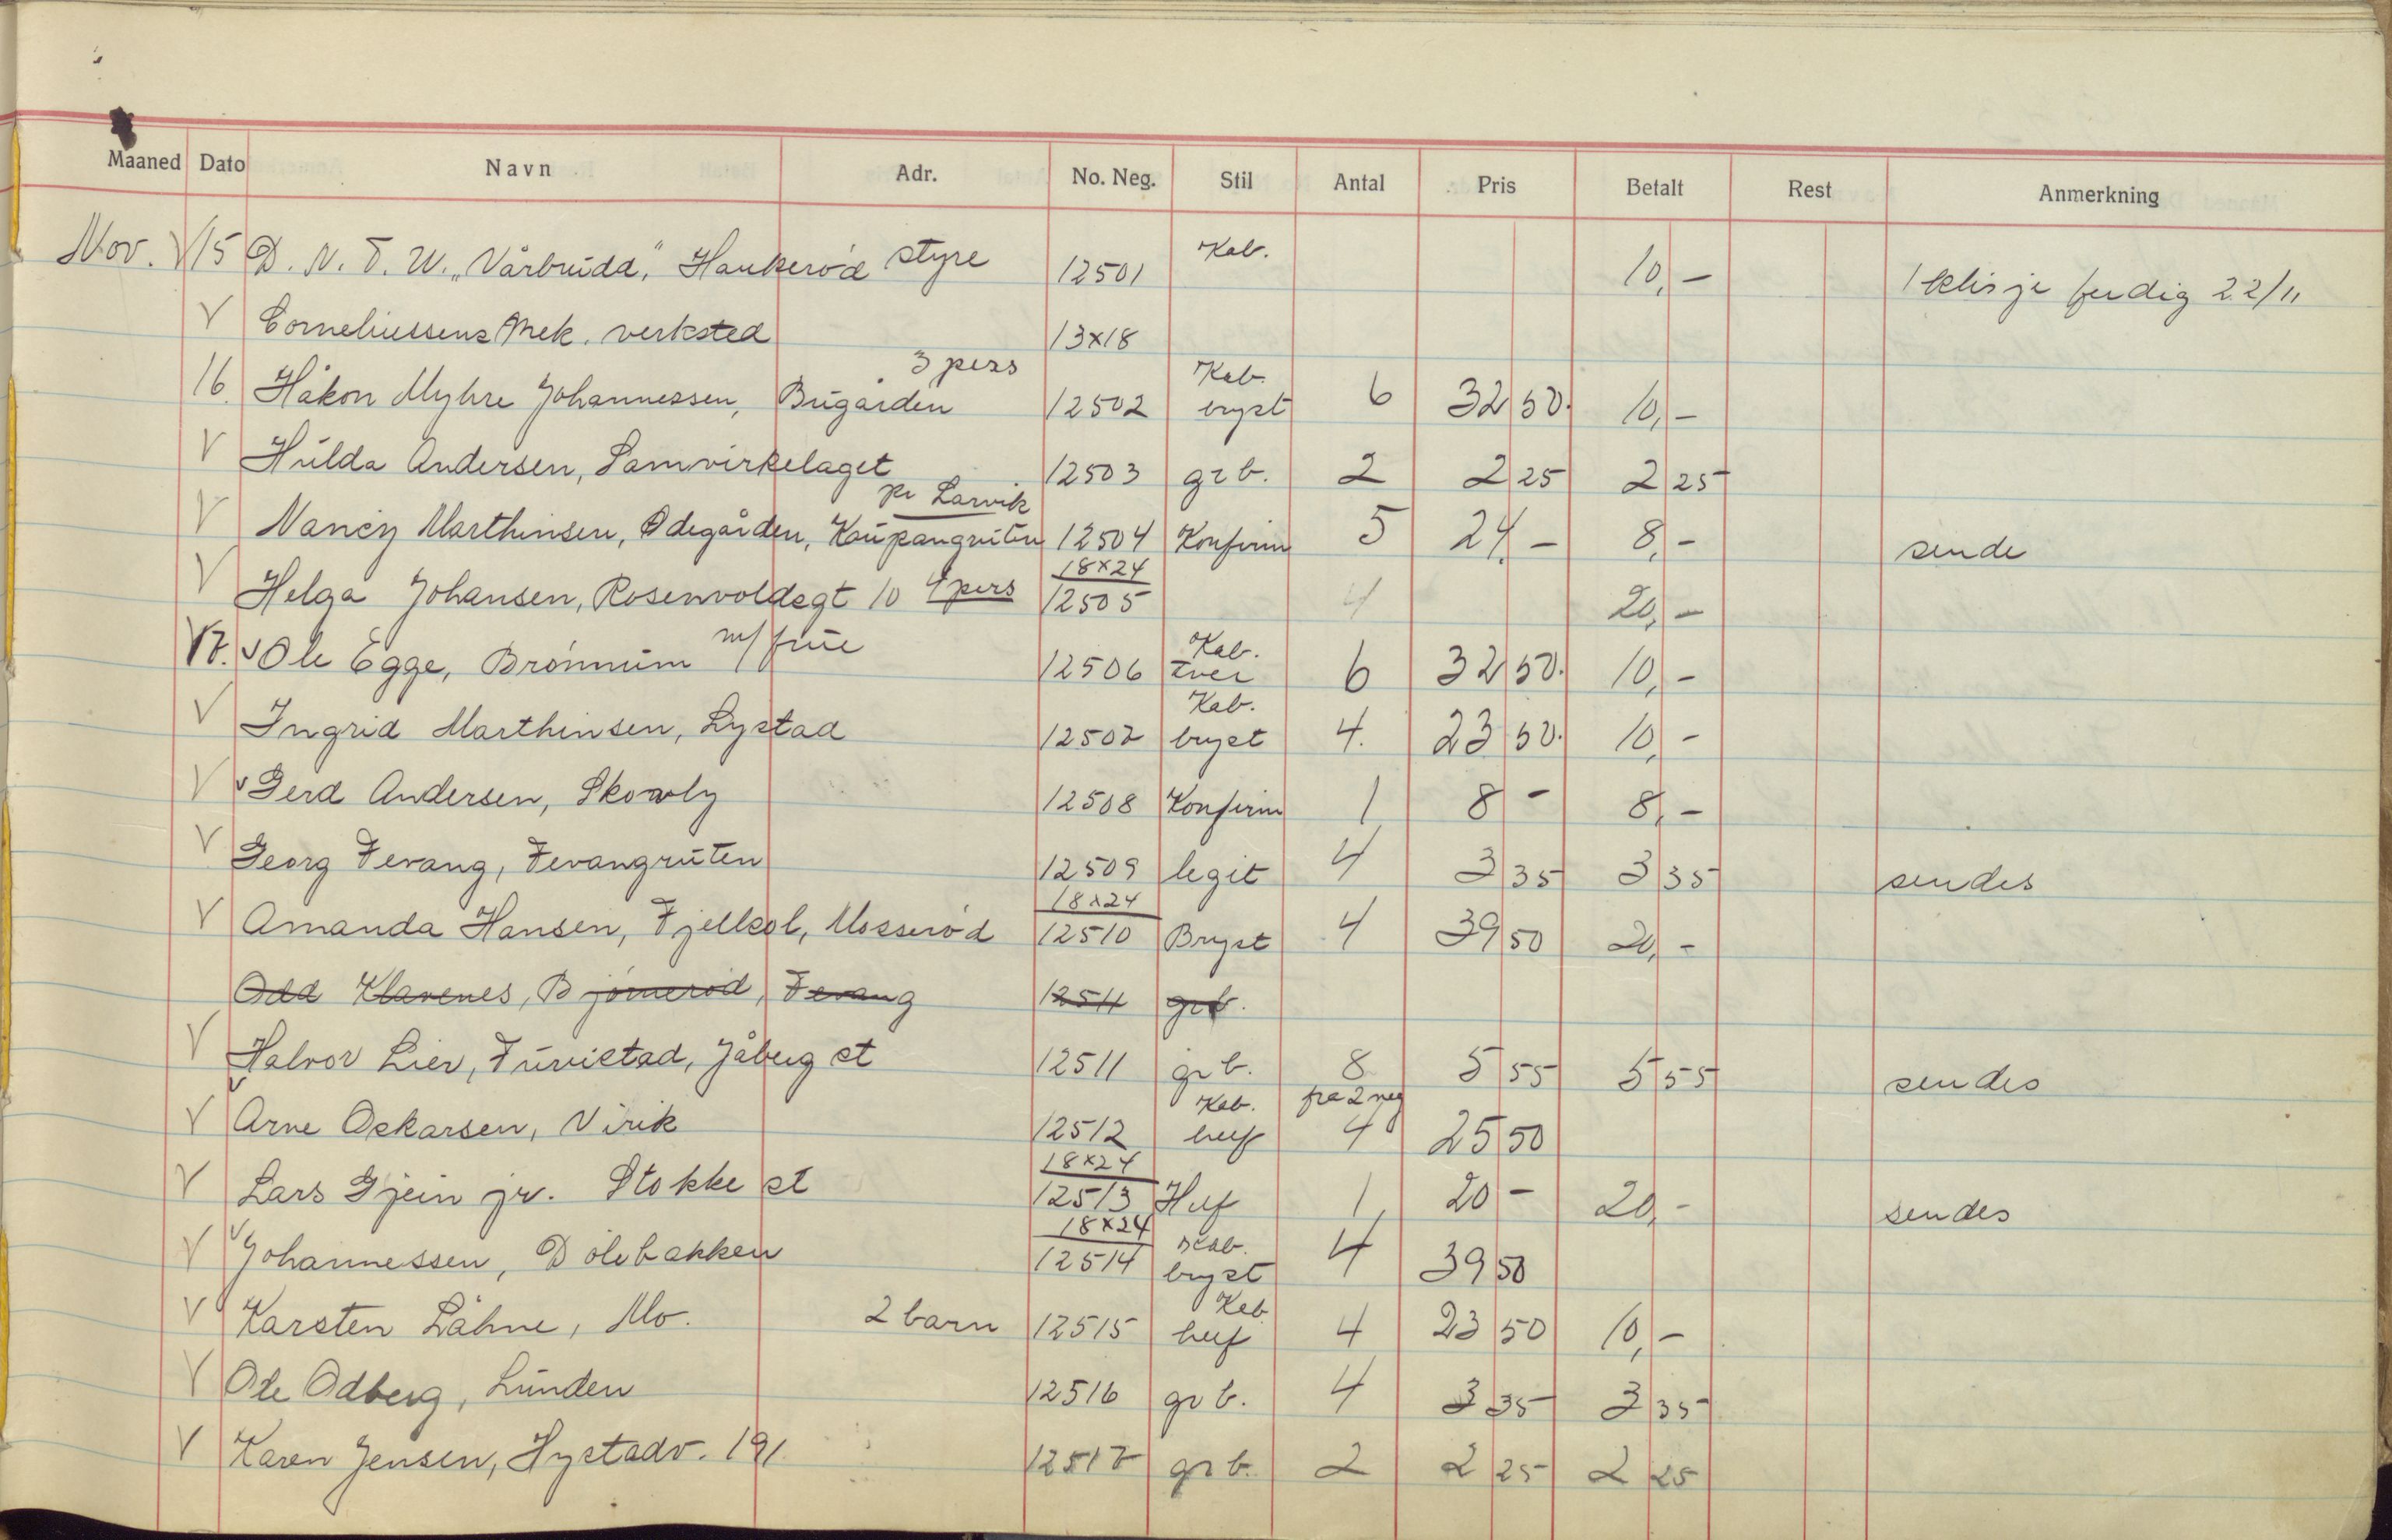 Maaned Dato Navn Adr. No. Neg. Stil Antal Pris Betalt Rest Anmerkning
Nov. V 15 D. N. T. U. „Vårbrudd," Haukerød styre 12501 Kab. 10,- 1 klisje ferdig 22/11
V Corneliussens Mek. verksted 13x18
16. Håkon Myhre Johannessen, Bugården 3 pers 12502 Kab. bryst 6 32 50. 10,-
V Hulda Andersen, Samvirkelaget 12503 grb. 2 2 25 2 25
V Nancy Marthinsen, Ødegården, Kaupangruten pr Larvik 12504 Konfirm 5 24,- 8,- sende
V Helga Johansen, Rosenvoldsgt 10 4 pers 18x24 12505 4 20,-
17. V Ole Egge, Brønnum m/frue 12506 Kab. tver 6 32 50. 10,-
V Ingrid Marthinsen, Lystad 12507 Kab. bryst 4. 23 50. 10,-
V V Gerd Andersen, Skovly 12508 Konfirm 1 8 - 8,-
V Georg Fevang, Fevangruten 12509 legit 4 3 35 3 35 sendes
V Amanda Hansen, Fjellsol, Mosserød 18x24 12510 Bryst 4 39 50 20,-
Odd Klavenes, Bjørnerød, Fevang 12511 grb.
V Halvor Lier, Furustad, Jåberg st 12511 grb. 8 5 55 5 55 sendes
V V Arne Oskarsen, Virik 12512 Kab. hel f fra 2 neg 4 25 50
V Lars Gjein jr. Stokke st 18x24 12513 Hel f 1 20 - 20,- sendes
V V Johannessen, Dølebakken 18x24 12514 Kab. bryst 4 39 50
V Karsten Låhne, Mo. 2 barn 12515 Kab hel f 4 23 50 10,-
V Ole Odberg, Lunden 12516 grb. 4 3 35 3 35
V Karen Jensen, Hystadv. 191 12517 grb. 2 2 25 2 25